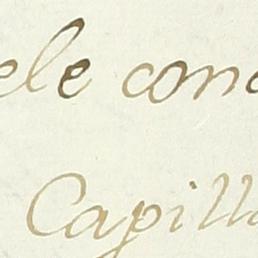 ele conc
Capill